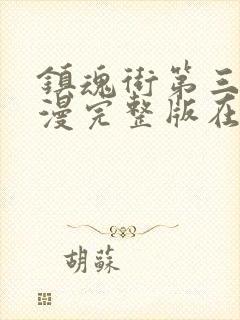 鎮魂街第三
漫完整版在
胡蘇